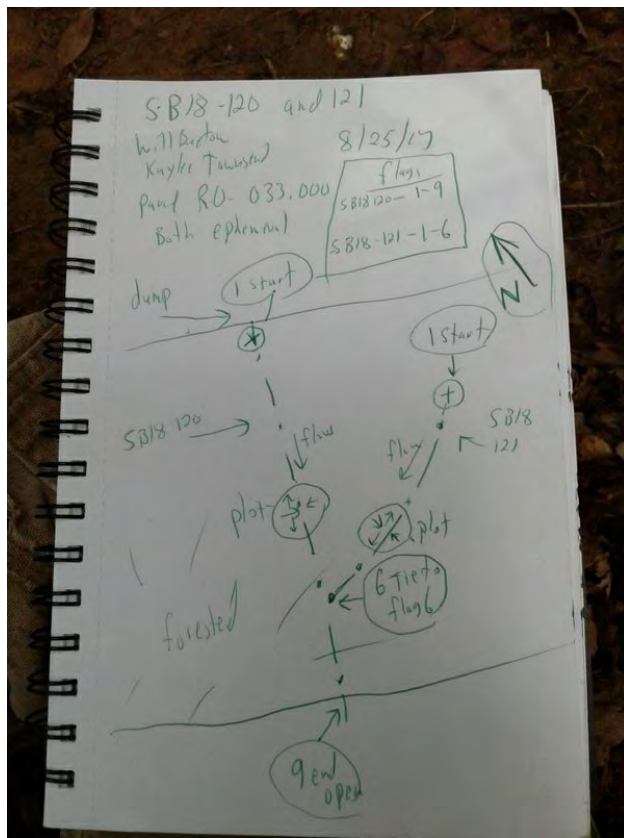 SB18-120 and 121
Will Burton
Kaylee Townsend
8/25/17
Parcel RO-033.000
Both ephemeral
flags
SB18 120- 1-9
SB18-121-1-6
N
1 start
dump
1 start
SB18 120
flow
flow
SB18
121
plot
plot
6 Tie to
flag 6
forested
9 end
open